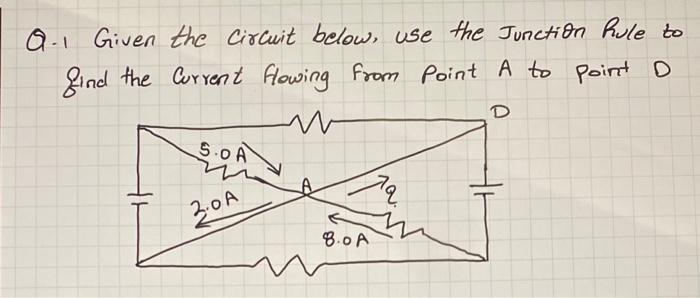 Q.1 Given the Circuit below, use the Junction Rule to
find the Current flowing from Point A to point D
D
5.0A
A
?
2.0A
8.0A